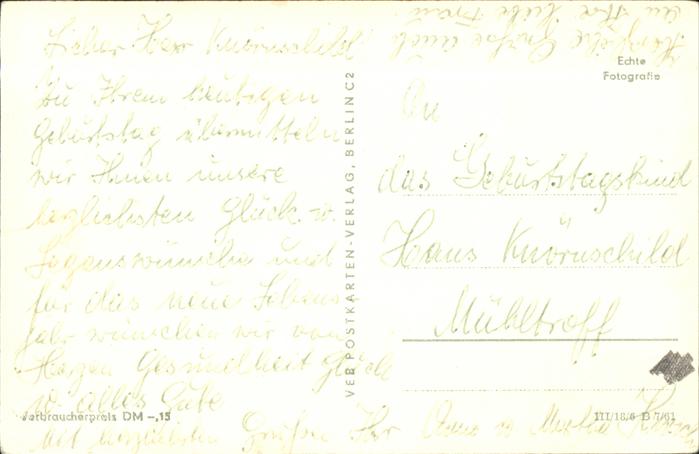 Lieber Herr Knörnschild
Zu Ihrem heutigen
Geburtstag übermitteln
wir Ihnen unsere
herzlichsten Glück- u.
Segenswünsche und
für das neue Lebens
jahr wünschen wir von
Herzen Gesundheit Glück
u. alles Gute
Mit herzlichsten Grüßen Ihr Anna u. Martha
Herzliche Grüße auch
an Ihre liebe Frau.
VEB POSTKARTEN-VERLAG, BERLIN C2
Echte
Fotografie
An
das Geburtstagskind
Hans Knörnschild
Mühltroff
Verbraucherpreis DM -,15
III/18/6 B 7/61